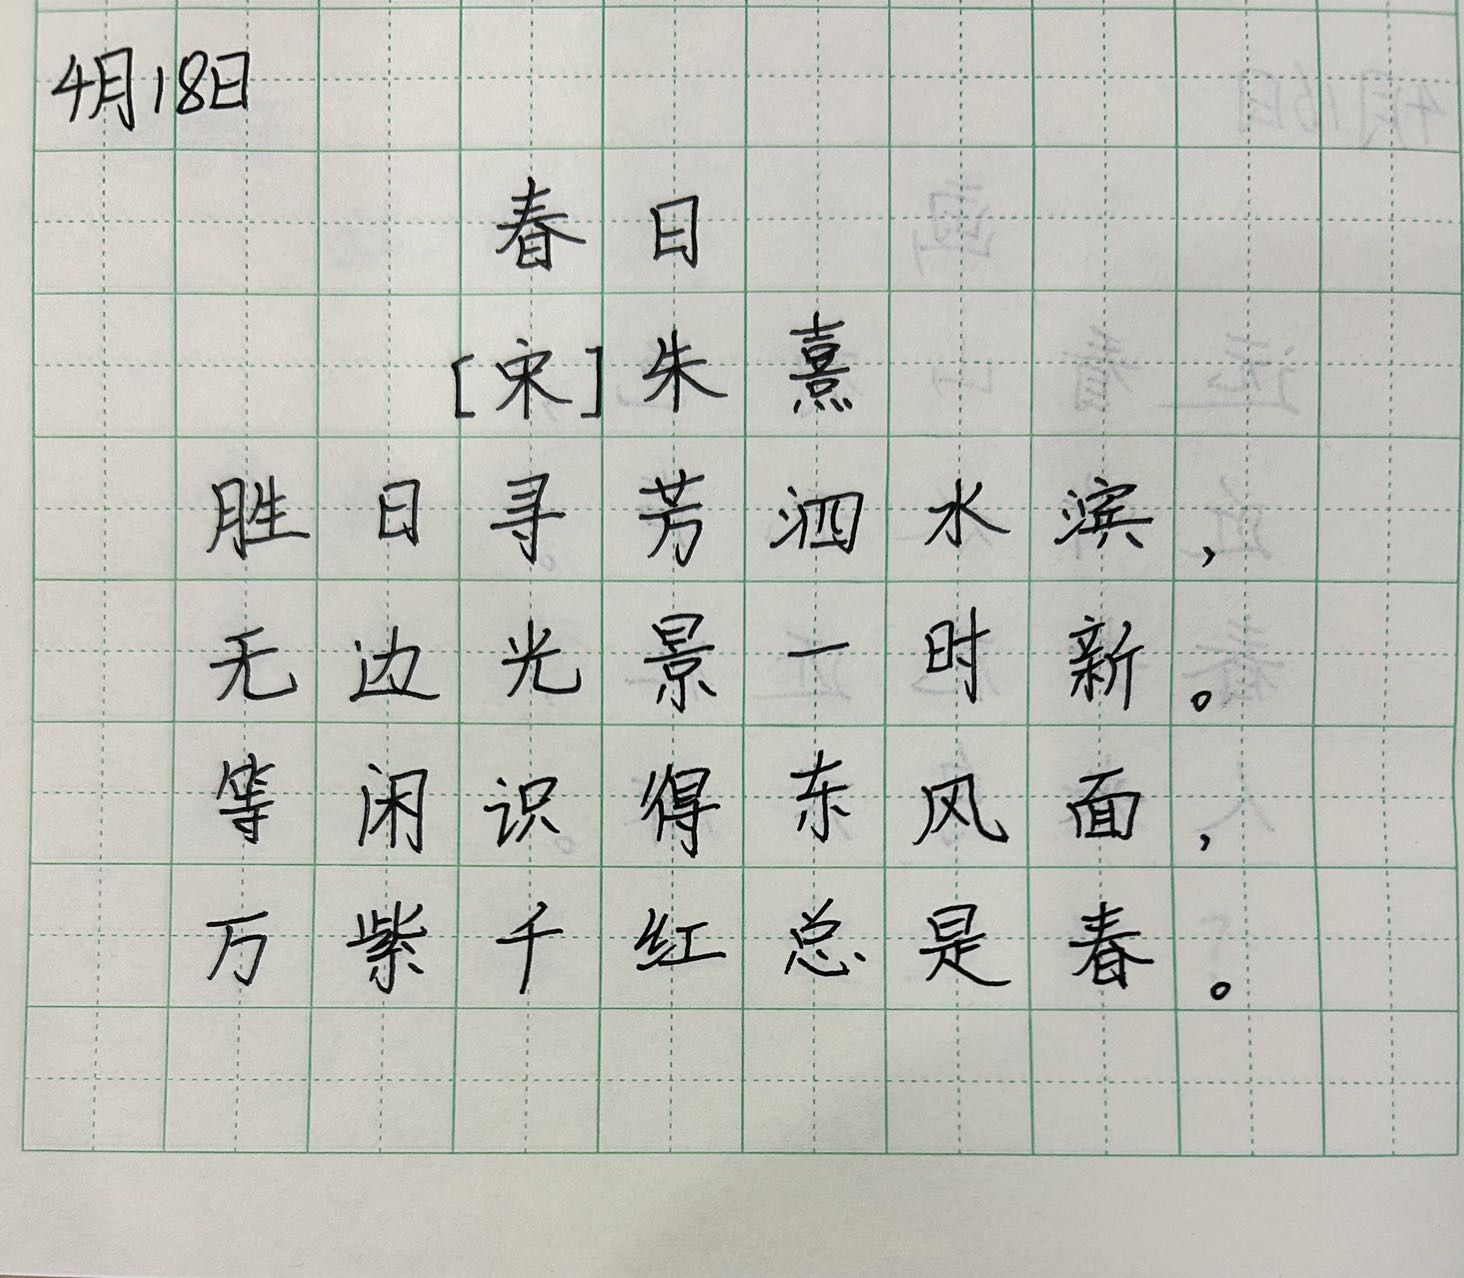 4月18日
春日
[宋]朱熹
胜日寻芳泗水滨,
无边光景一时新。
等闲识得东风面,
万紫千红总是春。